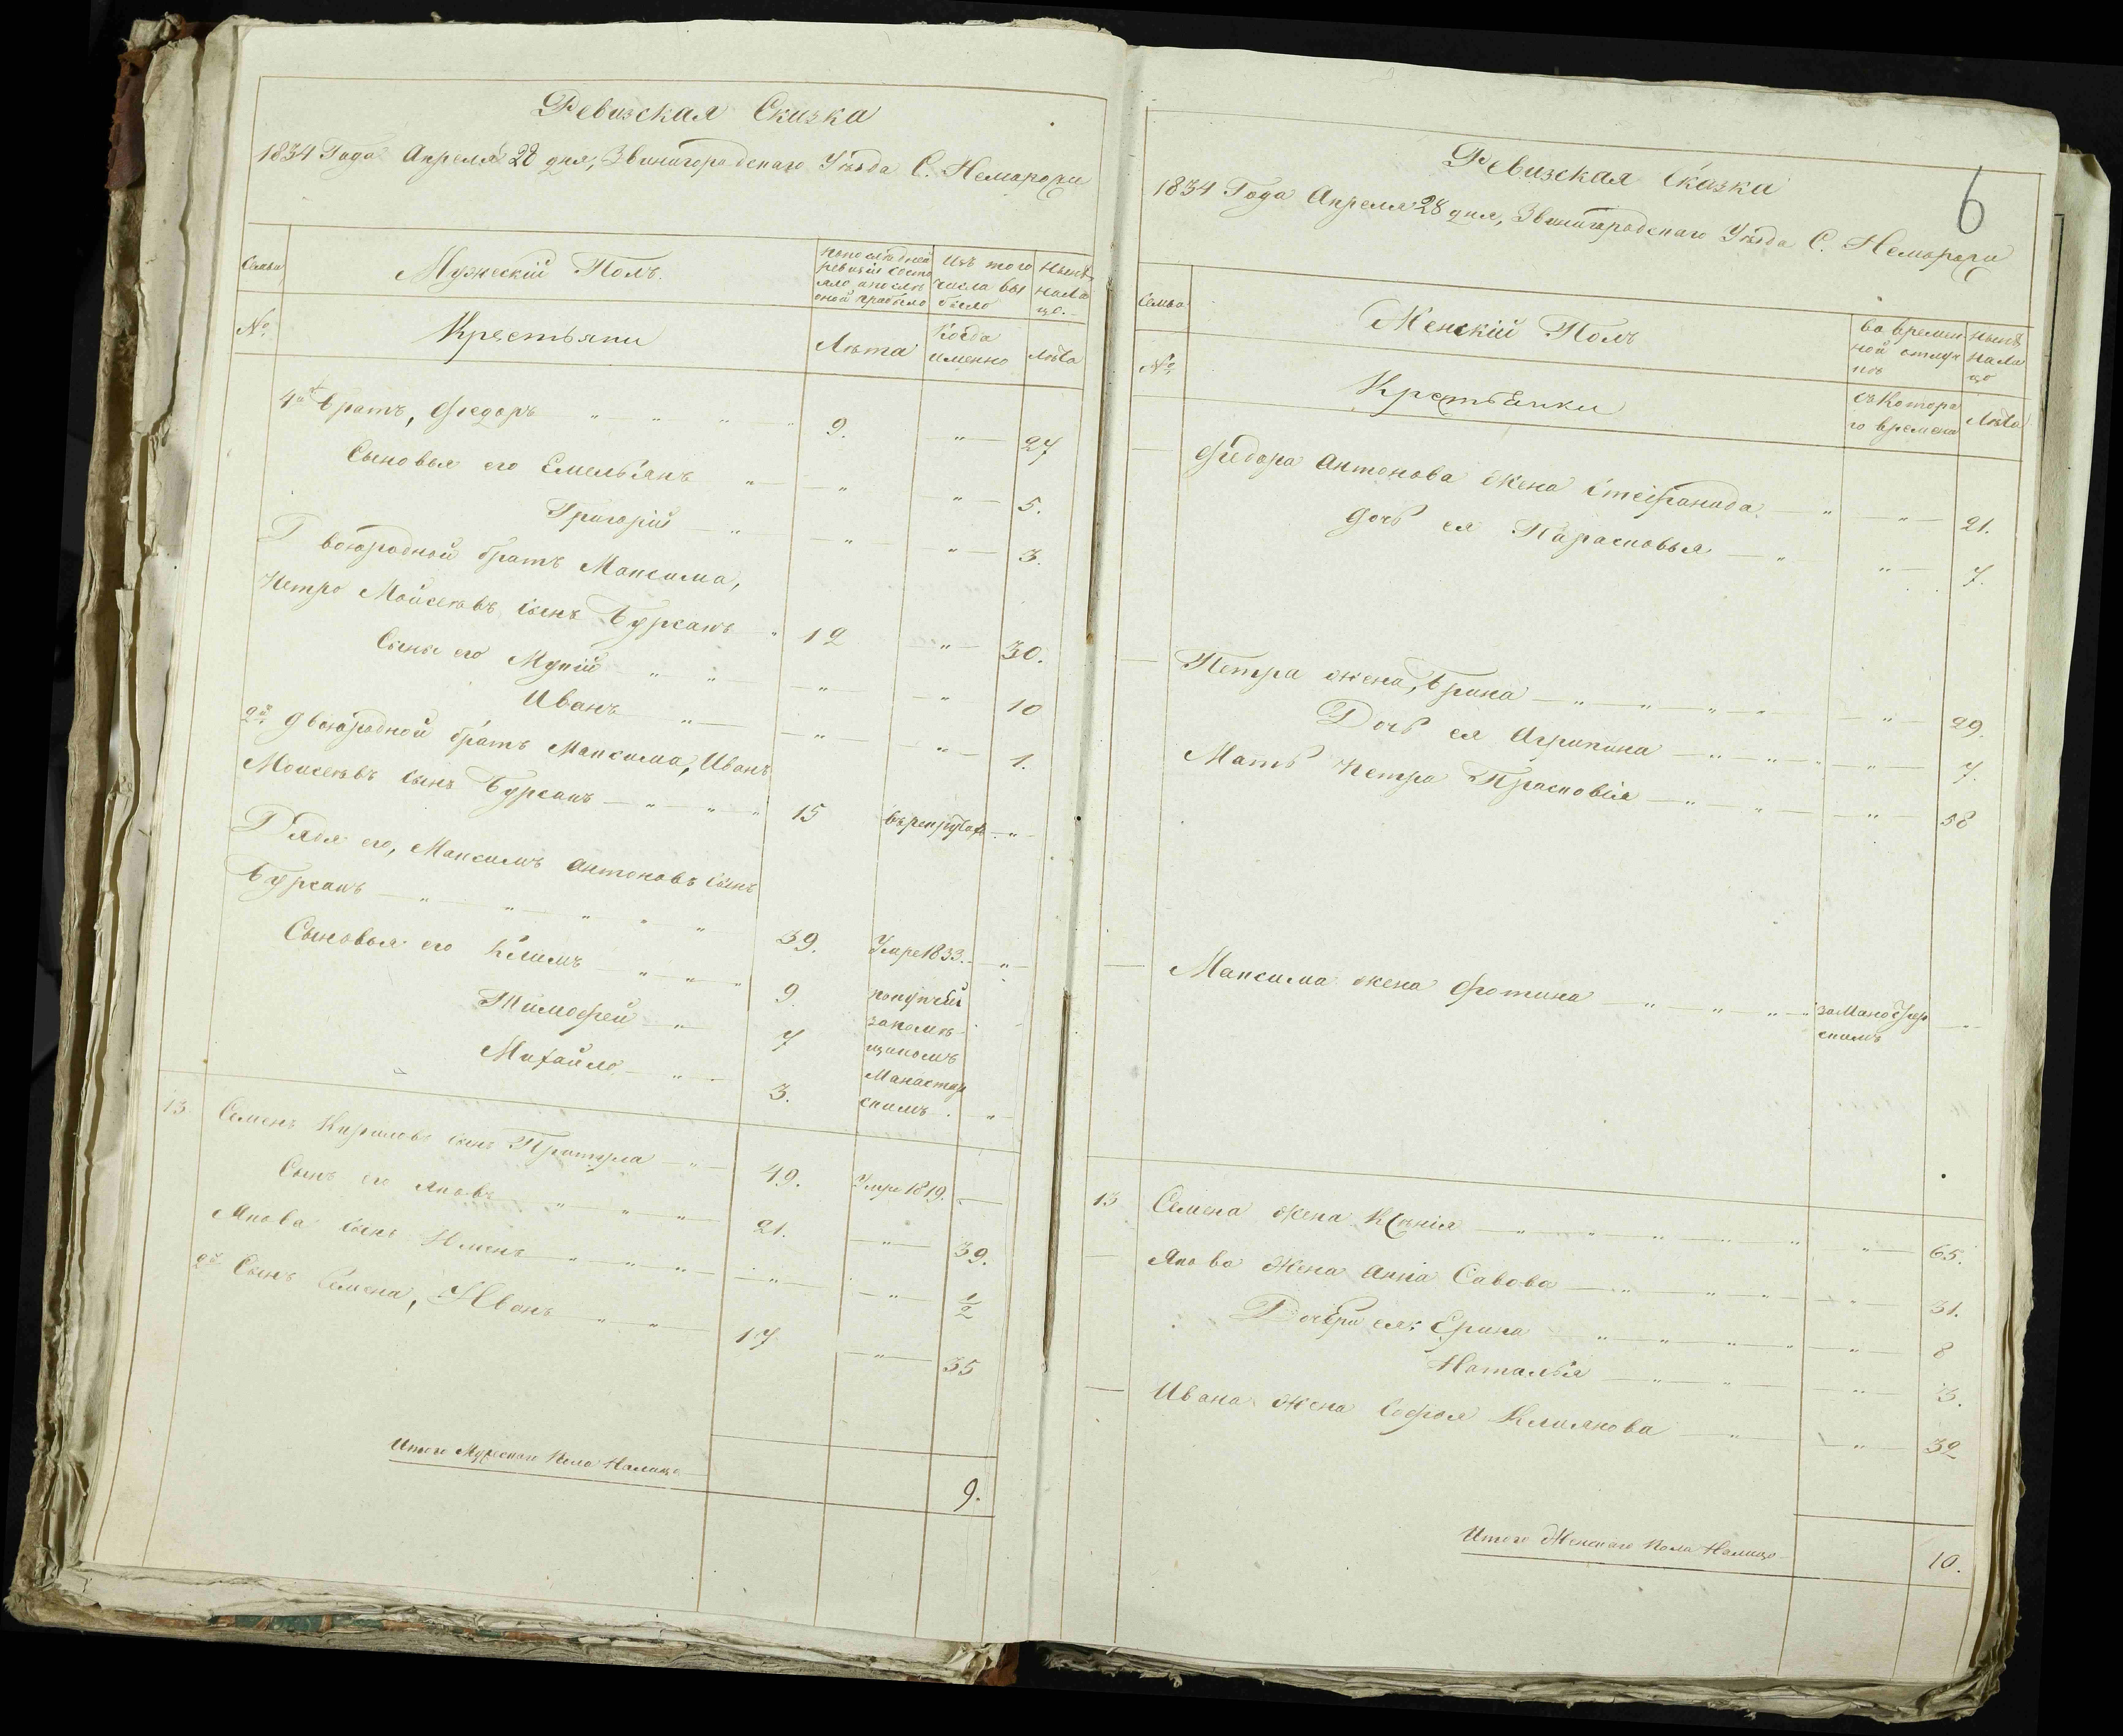 Ревизская Сказка
1834 Года Апреля 28 дня, Звинигородскаго Уѣзда С. Неморожи
Семьи
Мужескій Полъ.
по последней ревизіи состояло и после оной прибыло
Изъ того числа выбыло
Нынѣ на лицо.
№.
Крестьяни
Лѣта
Когда именно
Лѣта
4й братъ, Федоръ 9. 27
Сыновья его Емельянъ 5.
Григорій 3.
Двоюродной братъ Максима,
Петро Мойсеѣвъ сынъ Бурсакъ 12 30.
Сыны его Мукій 10
Иванъ 1.
2й двоюродной братъ Максима, Иванъ
Моисеѣвъ сынъ Бурсакъ 15 въ рекрутахъ
Дядя его, Максимъ Антоновъ сынъ
Бурсакъ 39. Умре 1833.
Сыновья его Климъ 9.
Тимофей 7
Михайло 3.
Манастыр
скимъ
13 Семенъ Кириловъ сынъ Притула 49. Умре 1819.
Сынъ его Яковъ 21. 39.
Якова сынъ 1/2
2й Сынъ Семена, Иванъ 17 35
Итого Мужескаго Пола Налицо 9.
6
Ревизская Сказка
1834 Года Апреля 28 дня, Звинигородскаго Уѣзда С. Неморожи
Семьи
Женскій Полъ
Во времен ной отлуч кѣ
Нынѣ на ли цо
№.
Крестьянки
Съ Котора го времена
Лѣта
Федора Антонова жена Стефанида 21.
Дочь ея Парасковья 7.
Петра жена, Ирина 29.
Дочь ея Агрипина 7.
Мать Петра Прасковія 58
Максима жена Фотина
13 Семена жена Ксѣнія 65.
Якова Жена Анна Савова 31.
Дочери ея: Ерина 8
Наталья 3.
Ивана Жена Софія Климкова 32
Итого Женскаго пола Налицо 10.